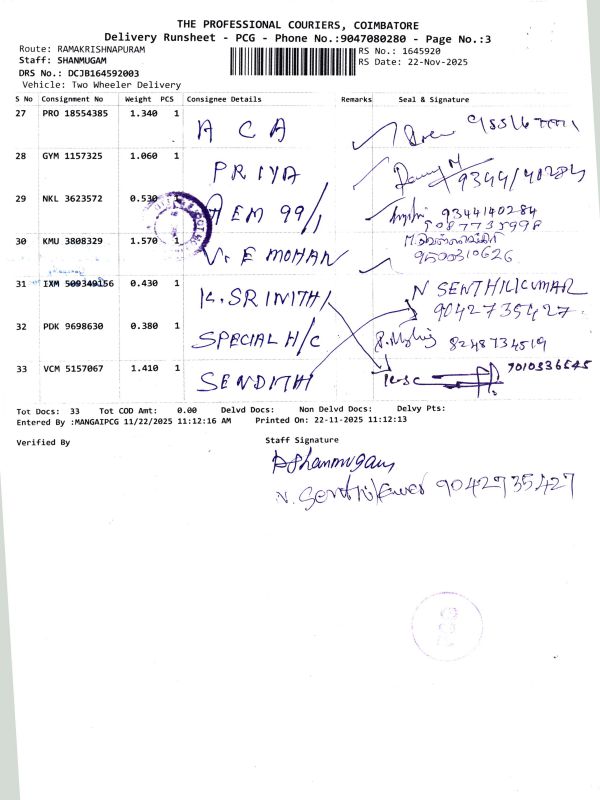 THE PROFESSIONAL COURIERS, COIMBATORE
Delivery Runsheet - PCG - Phone No.:9047080280 - Page No.:3
Route: RAMAKRISHNAPURAM
RS No.: 1645920
Staff: SHANMUGAM
RS Date: 22-Nov-2025
DRS No.: DCJB164592003
Vehicle: Two Wheeler Delivery
S No Consignment No Weight PCS Consignee Details Remarks Seal & Signature
27 PRO 18554385 1.340 1 A C A
28 GYM 1157325 1.060 1 PRIYA
29 NKL 3623572 0.530 AEM 99/1 9344140284
30 KMU 3808329 1.570 1 V. E MOHAN 9500310626
31 IXM 509349156 0.430 1 K. SRINITHI N SENTHILKUMAR
9042735427
32 PDK 9698630 0.380 1 SPECIAL H/C 8248734519
33 VCM 5157067 1.410 1 SENDITH 7010336545
Tot Docs: 33 Tot COD Amt: 0.00 Delvd Docs: Non Delvd Docs: Delvy Pts:
Entered By :MANGAIPCG 11/22/2025 11:12:16 AM Printed On: 22-11-2025 11:12:13
Verified By
Staff Signature
Shanmugam
N. Senthilkumar 9042735427